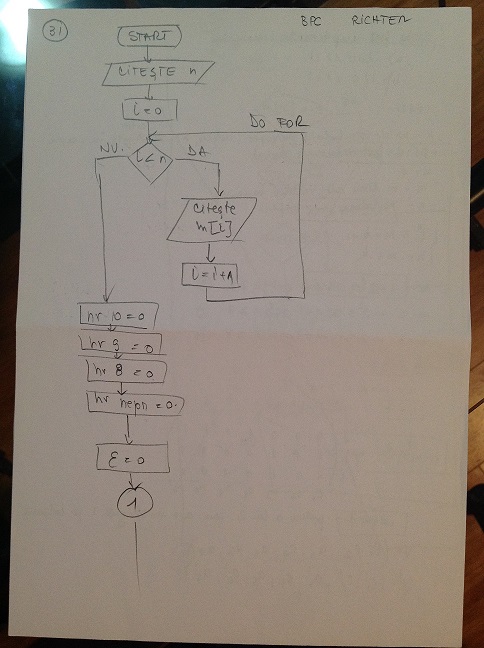 31
BPC RICHTER
START
CITEȘTE n
i=0
DO FOR
NU.
i<n
DA
citește
m[i]
i=i+1
nr 10=0
nr 9=0
nr 8=0
nr nepr=0.
ε=0
1